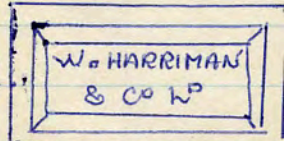 W. HARRIMAN
& Co Lᴰ